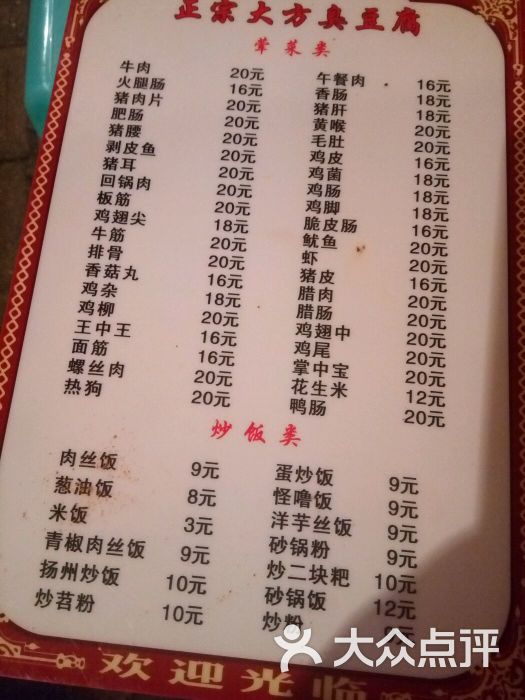 正宗大方臭豆腐
荤菜类
牛肉 20元 午餐肉 16元
火腿肠 16元 香肠 18元
猪肉片 20元 猪肝 18元
肥肠 20元 黄喉 20元
猪腰 20元 毛肚 20元
剥皮鱼 20元 鸡皮 16元
猪耳 20元 鸡菌 18元
回锅肉 20元 鸡肠 18元
板筋 20元 鸡脚 18元
鸡翅尖 18元 脆皮肠 16元
牛筋 20元 鱿鱼 20元
排骨 20元 虾 20元
香菇丸 16元 猪皮 20元
鸡杂 18元 腊肉 20元
鸡柳 20元 腊肠 20元
王中王 16元 鸡翅中 20元
面筋 16元 鸡尾 20元
螺丝肉 20元 掌中宝 20元
热狗 20元 花生米 12元
鸭肠 20元
炒饭类
肉丝饭 9元 蛋炒饭 9元
葱油饭 8元 怪噜饭 9元
米饭 3元 洋芋丝饭 9元
青椒肉丝饭 9元 砂锅粉 9元
扬州炒饭 10元 炒二块粑 10元
炒苕粉 10元 砂锅饭 12元
炒粉
欢迎光临
大众点评